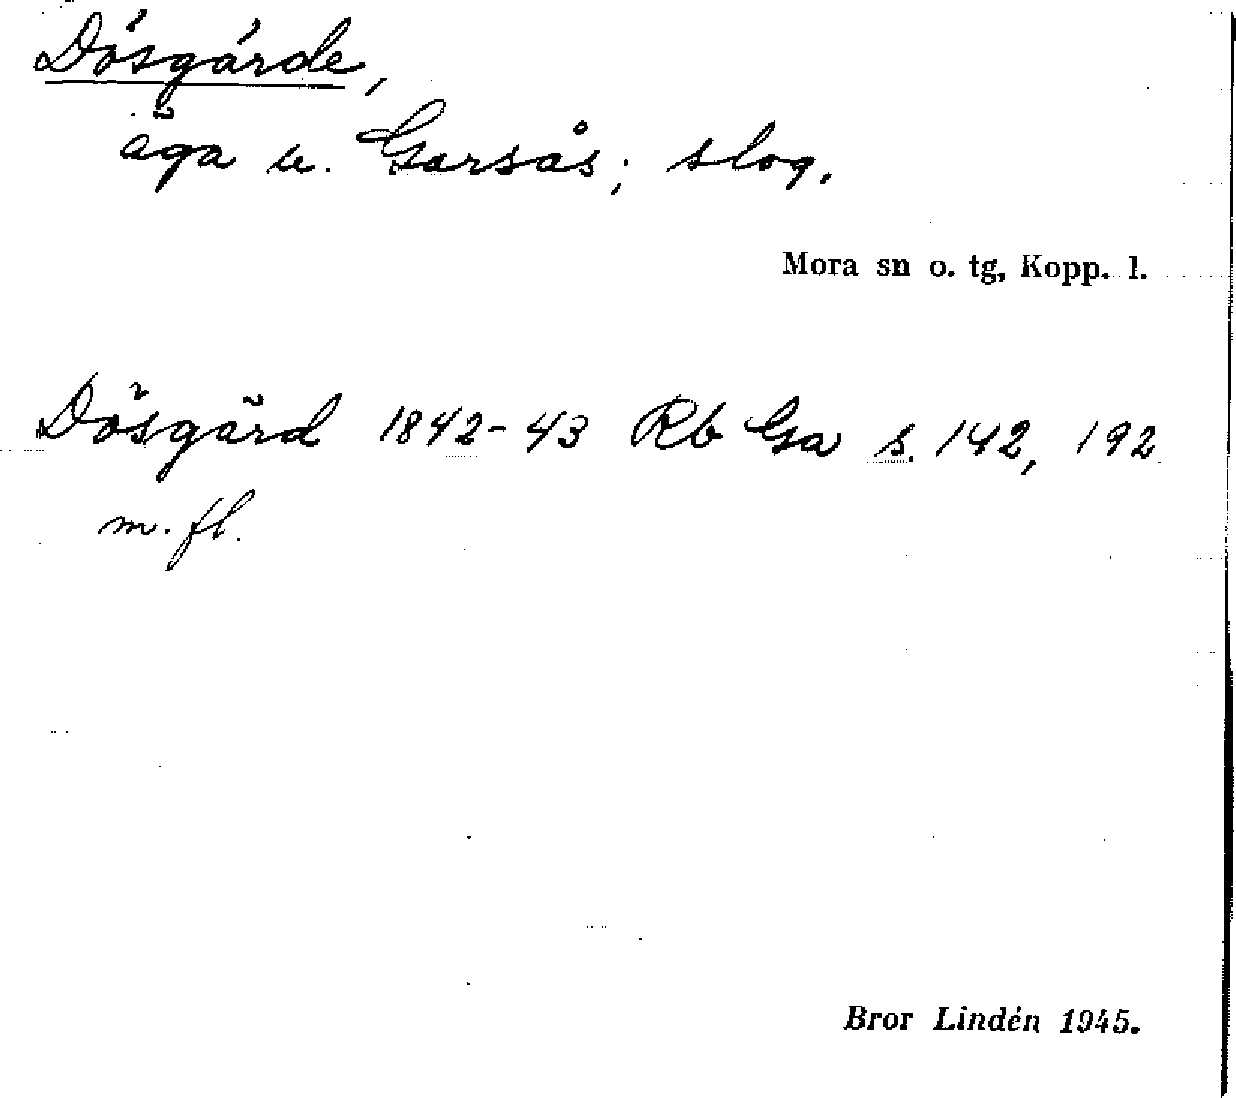 Dösgärde,
äga u. Garsås; slog.
Mora sn o. tg, Kopp. l.
Dösgärd 1842-43 Rb Ga s. 142, 192
m. fl.
Bror Lindén 1945.